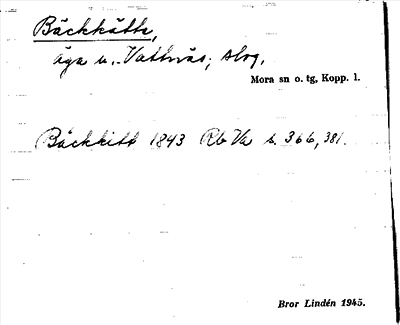 Bäckkätte,
äga u. Vattnäs, skog,
Mora sn o. tg, Kopp. l.
Bäckkitt 1843 Rb Va s. 366, 381.
Bror Lindén 1945.